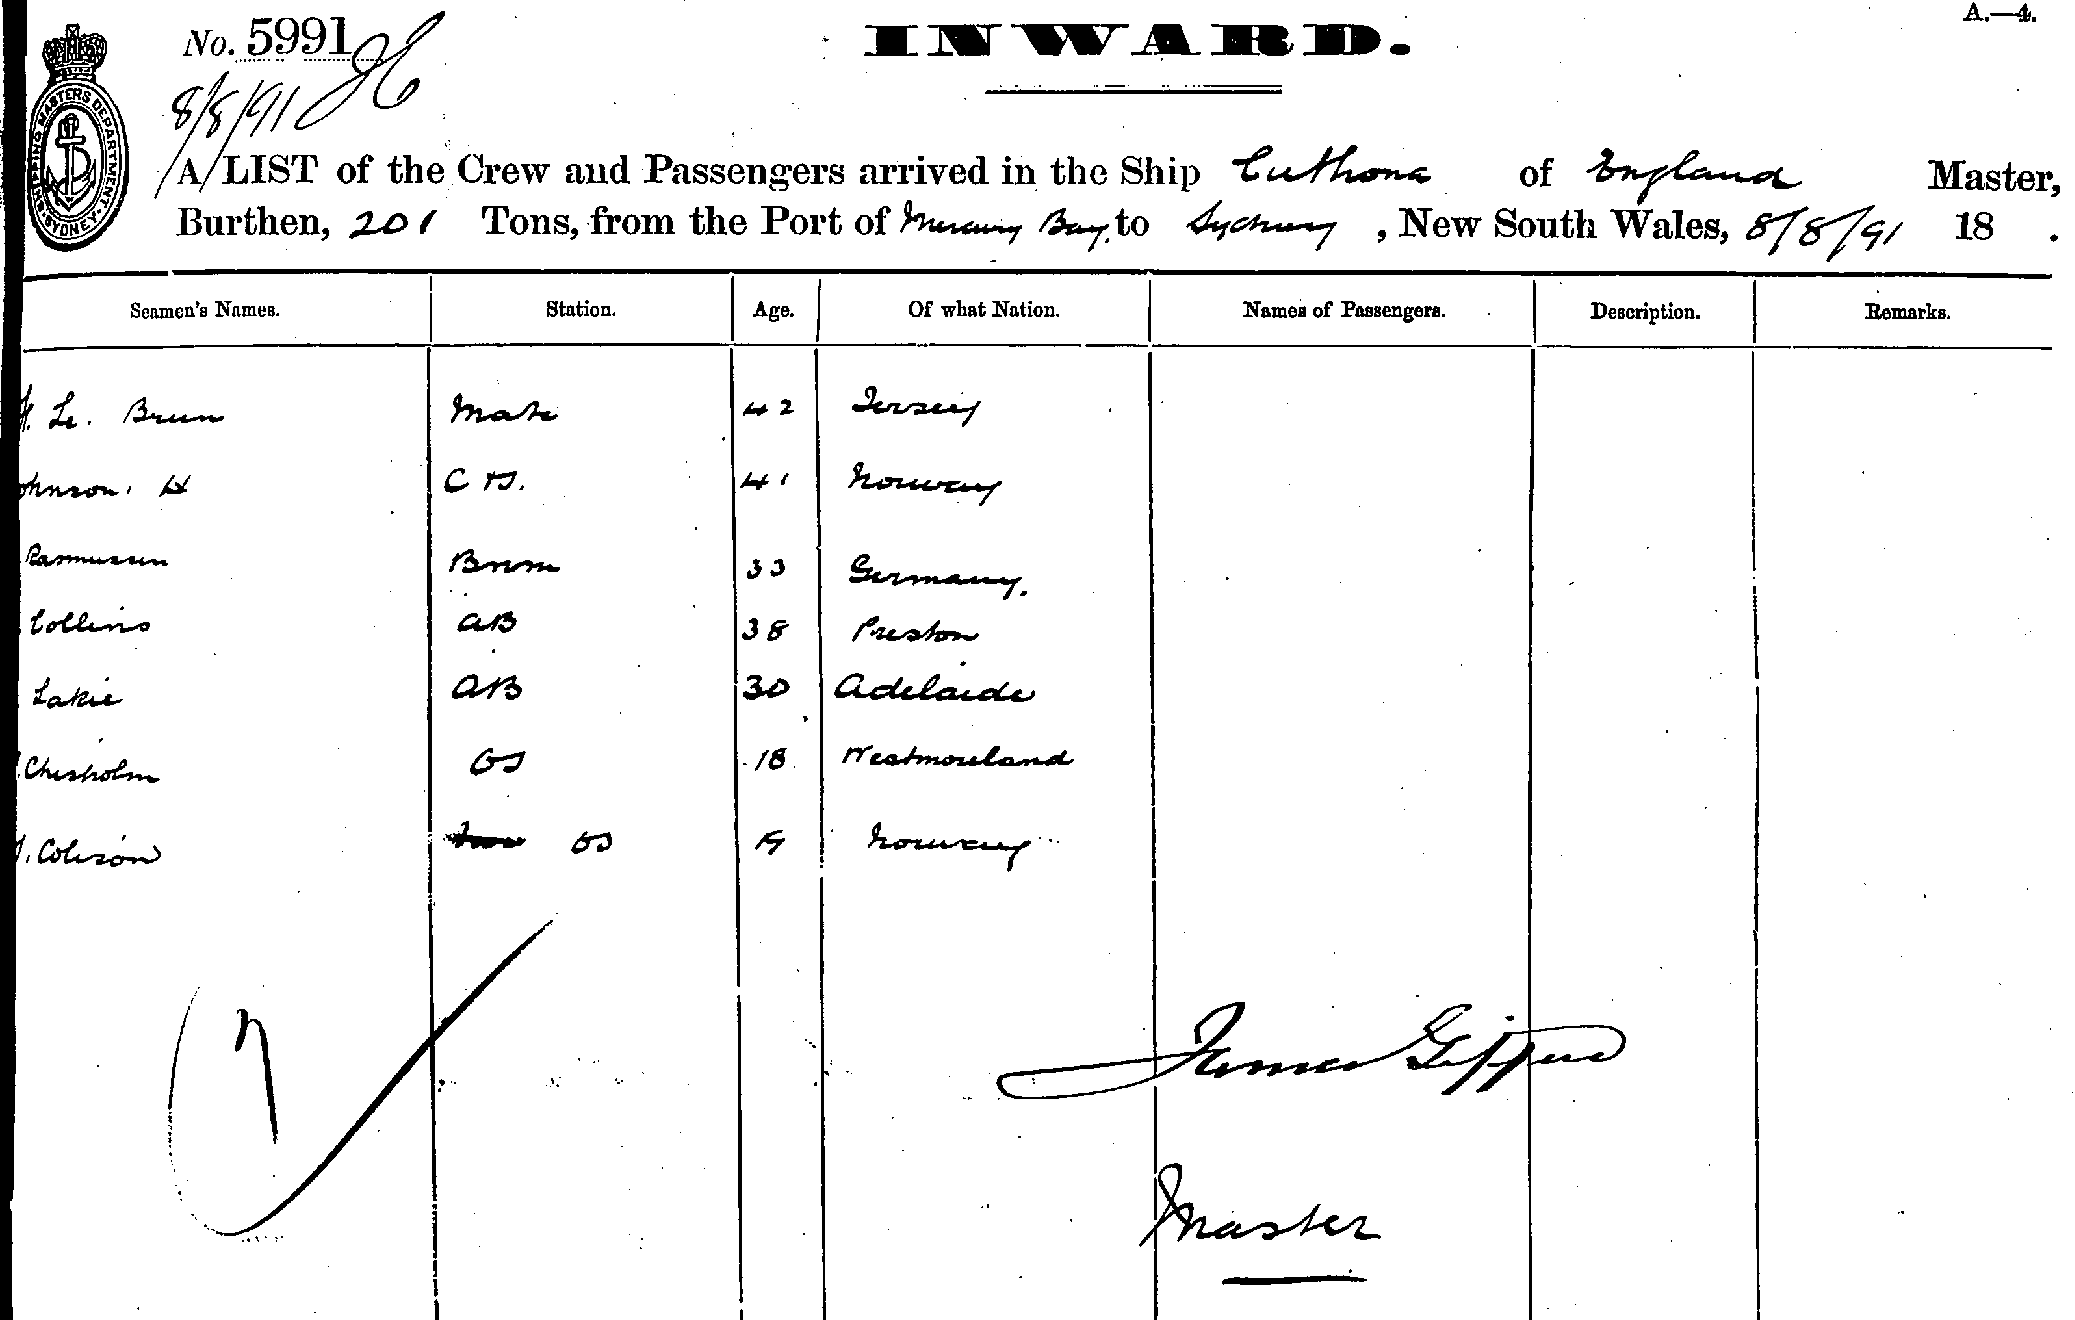 No. 5991
INWARD.
A.—4.
8/8/91
SHIPPING MASTERS DEPARTMENT SYDNEY
A LIST of the Crew and Passengers arrived in the Ship Cuthona of England Master,
Burthen, 201 Tons, from the Port of Mercury Bay, to Sydney, New South Wales, 8/8/91 18 .
Seamen's Names. Station. Age. Of what Nation. Names of Passengers. Description. Remarks.
H. Le. Brun Mate 42 Jersey
ohnson. H 41 Norway
Rasmussen 33 Germany.
Collins AB 38 Preston
Lakie AB 30 Adelaide
Chisholm OS 18 Westmoreland
Colison OS 19 Norway
7
James
Master